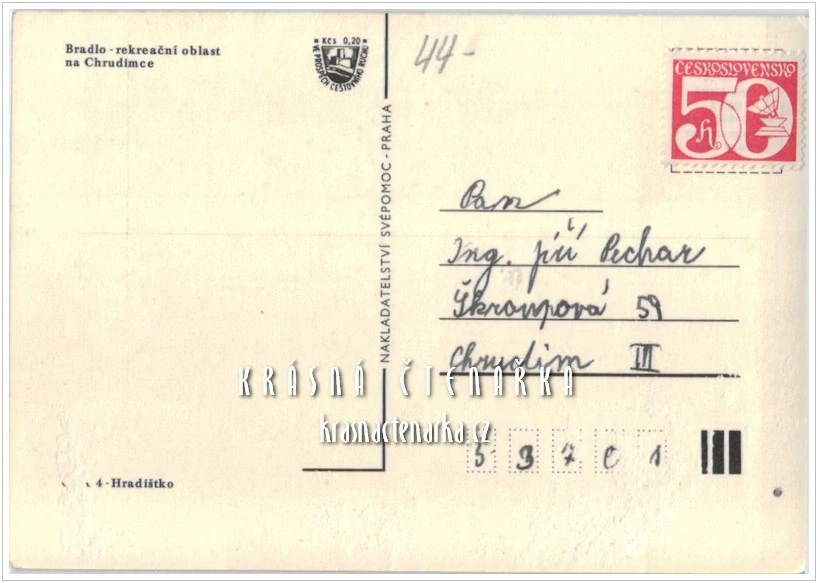 Bradlo - rekreační oblast
na Chrudimce
Kčs 0,20
VE PROSPĚCH CESTOVNÍHO RUCHU
44-
ČESKOSLOVENSKO
50
h
NAKLADATELSTVÍ SVÉPOMOC - PRAHA
Pan
Ing. Jiří Pechar
Škroupová 59
Chrudim III
KRÁSNÁ ČTENÁRKA
krasnactenarka.cz
5 3 7 0 1
4 - Hradištko